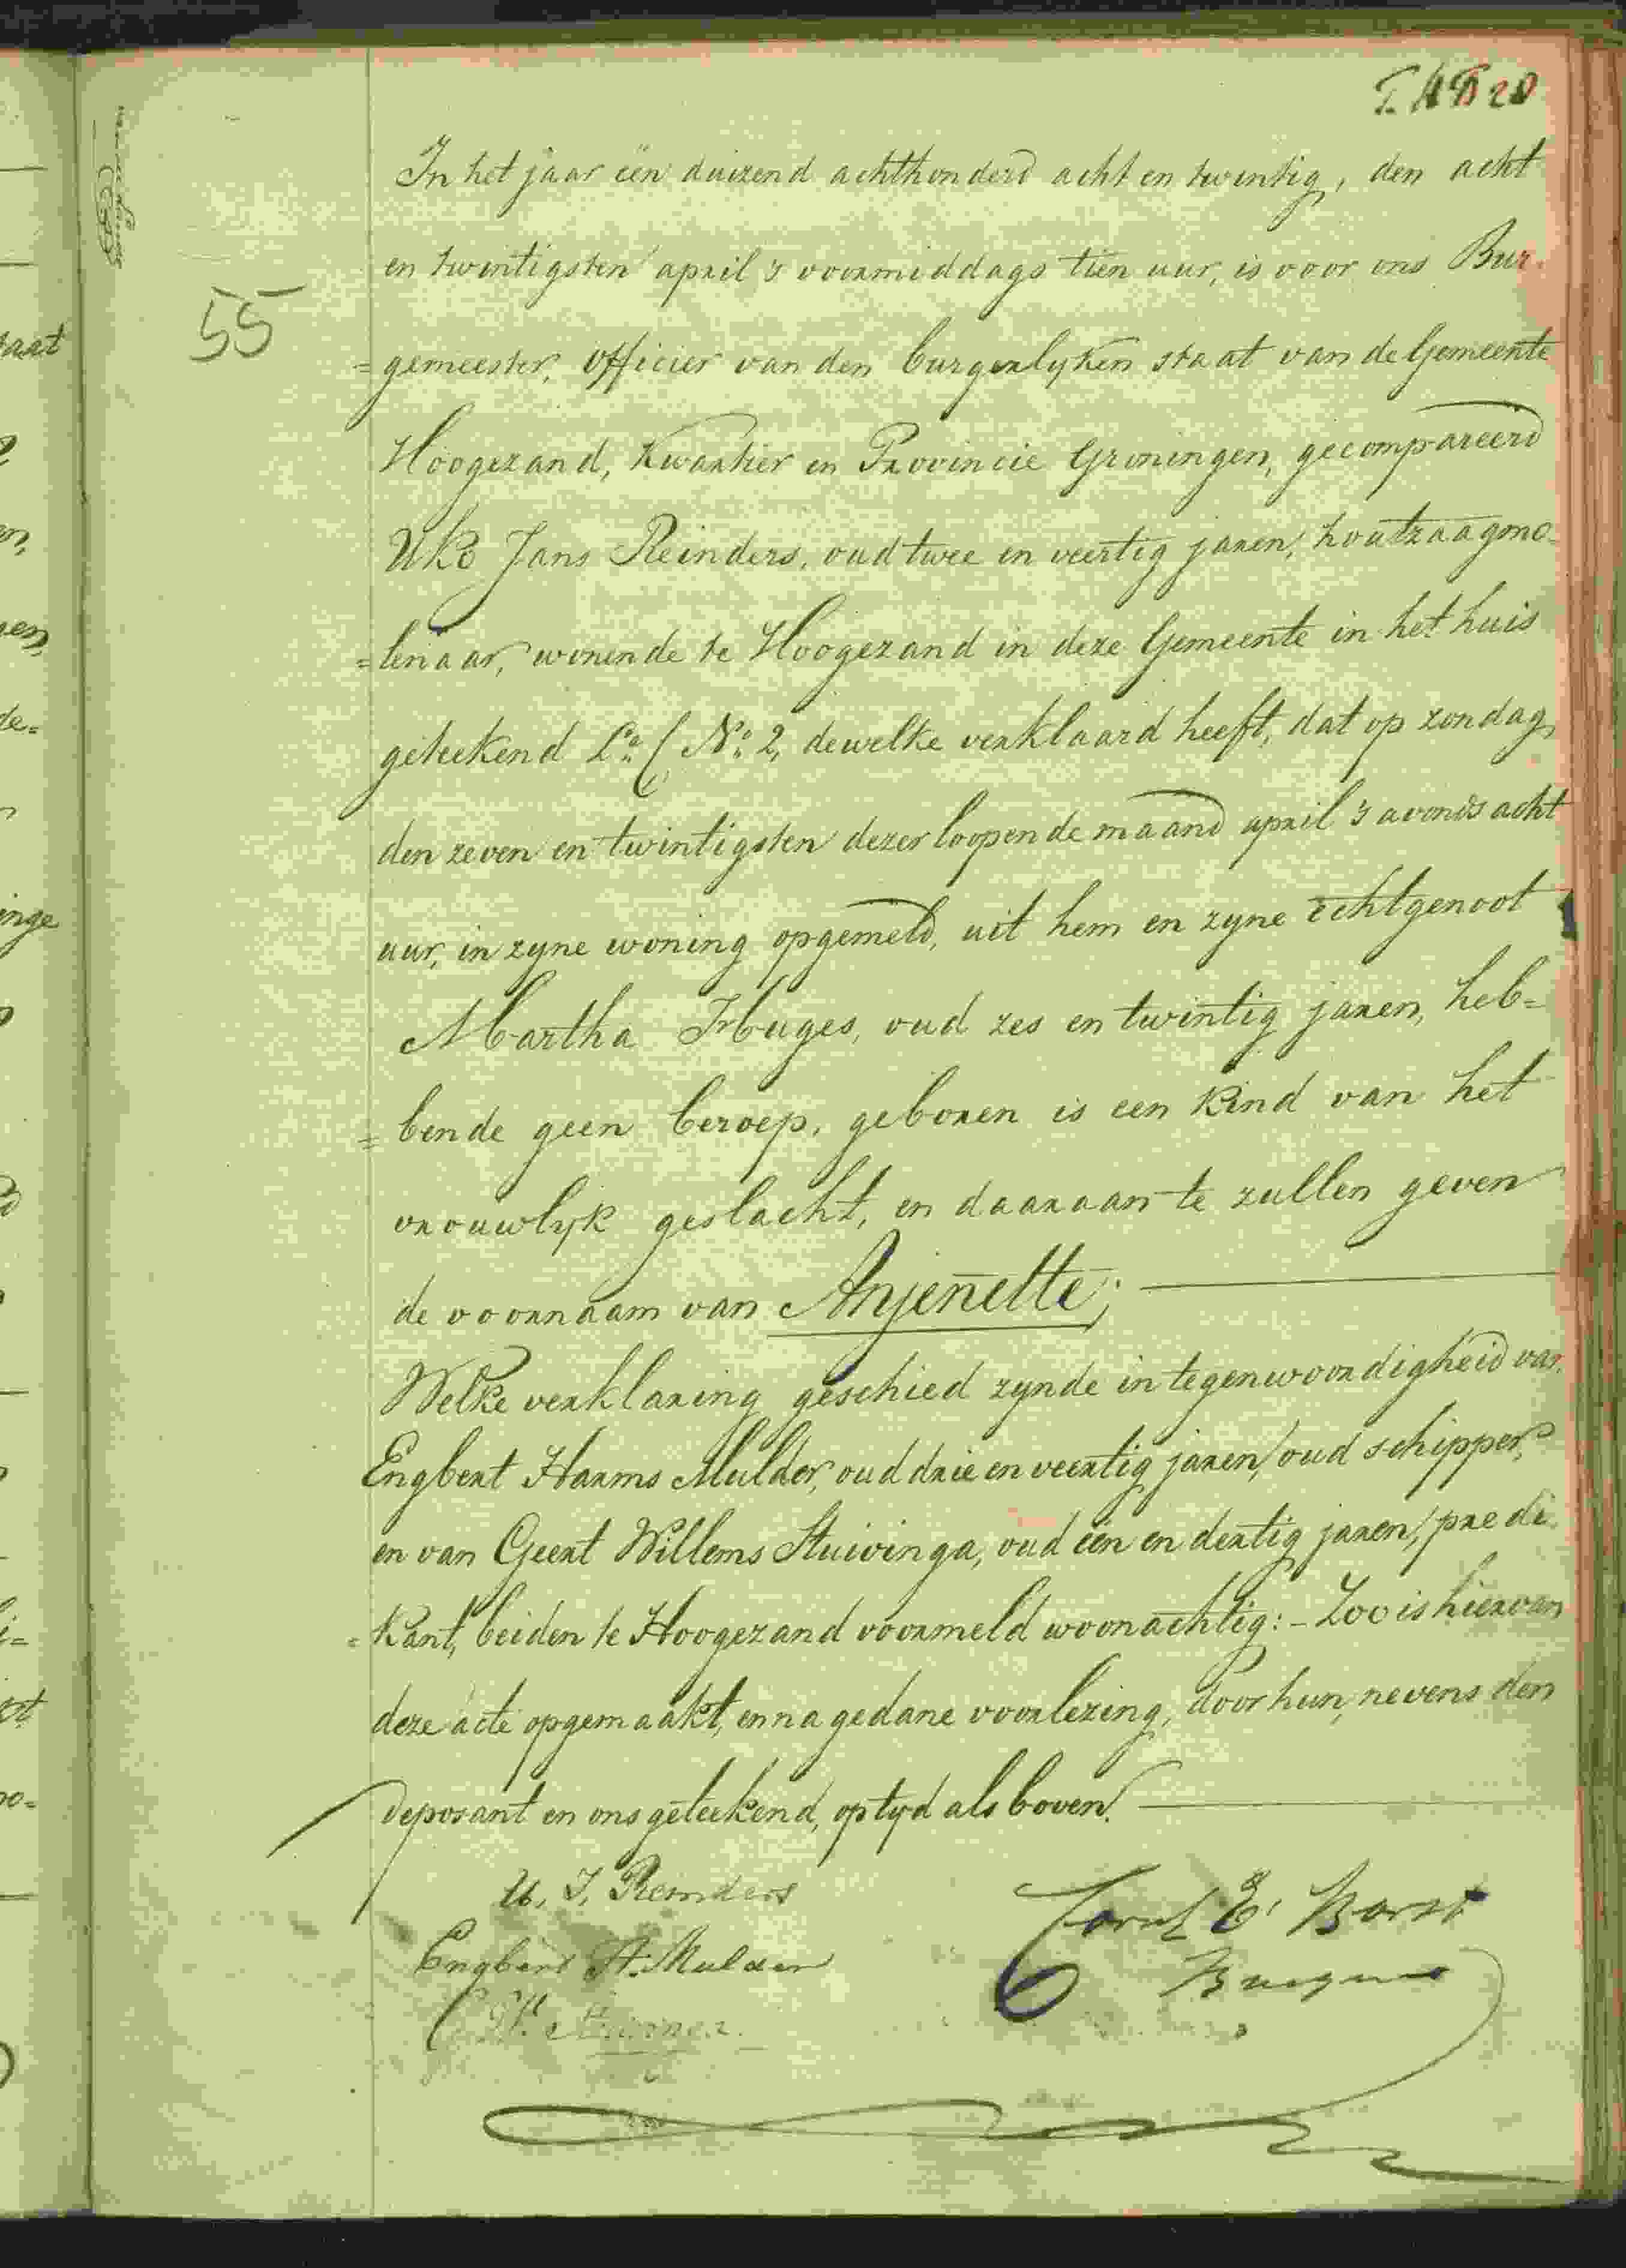 55
In het jaar één duizend achthonderd acht en twintig, den acht
en twintigsten april 's voormiddags tien uur, is voor ons Bur-
=gemeester, officier van den burgerlyken staat van de Gemeente
Hoogezand, Kwartier en Provincie Groningen, gecompareerd
Uko Jans Reinders, oud twee en veertig jaren, houtzaagmo-
=lenaar, wonende te Hoogezand in deze Gemeente in het huis
geteekend La. C No. 2, dewelke verklaard heeft, dat op zondag
den zeven en twintigsten dezer loopende maand april 's avonds acht
uur, in zyne woning opgemeld, uit hem en zyne echtgenoot
Martha Huges, oud zes en twintig jaren, heb=
=bende geen beroep, geboren is een kind van het
vrouwlyk geslacht, en daaraan te zullen geven
de voornaam van Anjenette;
Welke verklaring geschied zynde in tegenwoordigheid van
Engbert Harms Mulder, oud drie en veertig jaren, oud schipper,
en van Geert Willems Stuivinga, oud één en dertig jaren, predi-
=kant, beiden te Hoogezand voormeld woonachtig:- Zoo is hiervan
deze acte opgemaakt, en na gedane voorlezing, door hun, nevens den
deposant en ons geteekend, op tyd als boven.
U. J. Reinders
Engbert H. Mulder
E. Borst